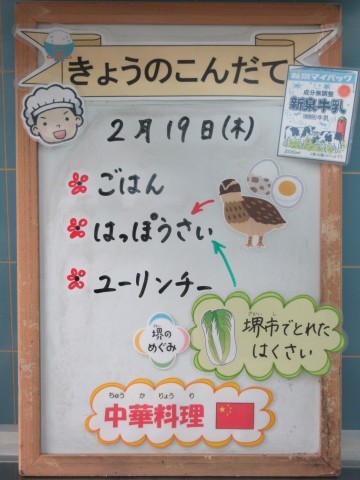 きょうのこんだて
新泉マイパック
成分無調整
新泉牛乳
2月19日(木)
ごはん
はっぽうさい
ユーリンチー
堺のめぐみ
さかいし
堺市でとれた
はくさい
ちゅうかりょうり
中華料理